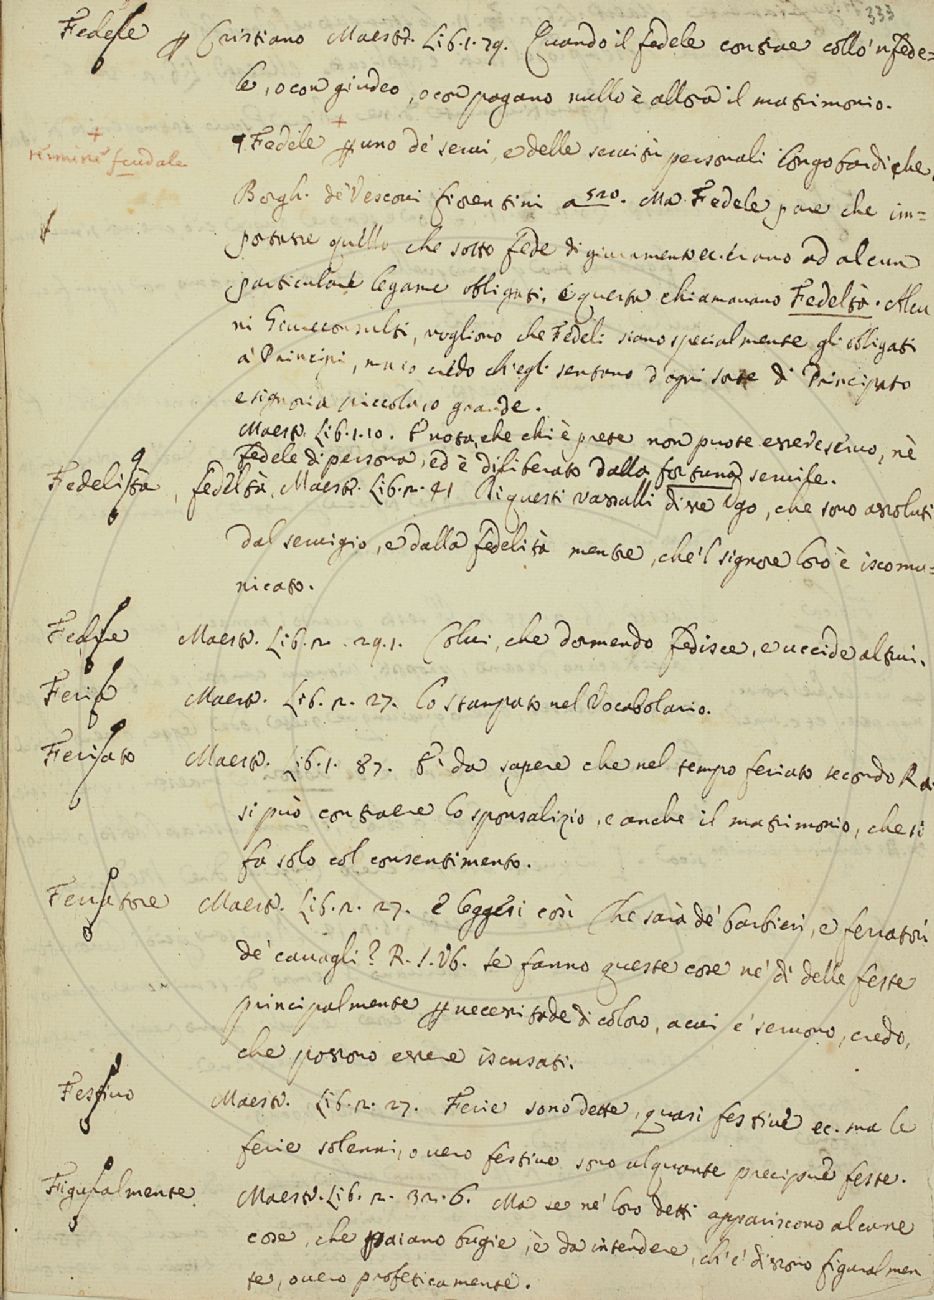 333
Fedele ꝑ Cristiano Maestr. Lib. 1. 79. Quando il fedele contrae collo 'nfede=
le, o con giudeo, o con pagano nullo è allora il matrimonio.
+
termine feudale
¶ Fedele + ꝑ uno de' servi, e delle servitù personali longobardiche.
Borgh. de' Vescovi fiorentini a 520. Ma Fedele pare che im=
portasse quello che sotto fede di giuramento ec. erano ad alcun
particolare legame obbligati, e questa chiamavano Fedeltà. Alcu
ni Giureconsulti, vogliono che Fedeli siano specialmente gli obbligati
a' Principi, ma io credo ch'egli sentano d'ogni sorte di Principato
e signoria piccola, o grande.
Maestr. Lib. 1. 10. E nota, che chi è prete non puote essere servo, nè
fedele di persona, ed è diliberato dalla fortuna servile.
Fedelità, fedeltà. Maestr. Lib. 2. 41 Di questi vassalli disse Ugo, che sono assoluti
dal servigio, e dalla fedelità mentre, che 'l signore loro è iscomu=
nicato.
Maestr. Lib. 2. 29. 1. Colui, che dormendo fedisce, e uccide altrui.
Feria Maestr. Lib. 2. 27. Lo stampato nel Vocabolario.
Feriato Maestr. Lib. 1. 87. E' da sapere che nel tempo feriato secondo
si può contraere lo sponsalizio, e anche il matrimonio, che si
fa solo col consentimento.
Ferratore Maestr. Lib. 2. 27. E leggesi così Che sarà de' barbieri, e ferratori
de' cavagli? R. Se fanno queste cose ne' dì delle feste
principalmente ꝑ necessitade di coloro, a cui e' servono, credo,
che possono essere iscusati.
Festivo Maestr. Lib. 2. 27. Ferie sono dette, quasi festive ec. ma le
ferie solenni, overo festive sono alquante precipue feste.
Figuralmente Maestr. Lib. 2. 32. 6. Ma se ne' loro detti appariscono alcune
cose, che paiano bugie, è da intendere, ch'e' dissono figuralmen
te, overo profeticamente.